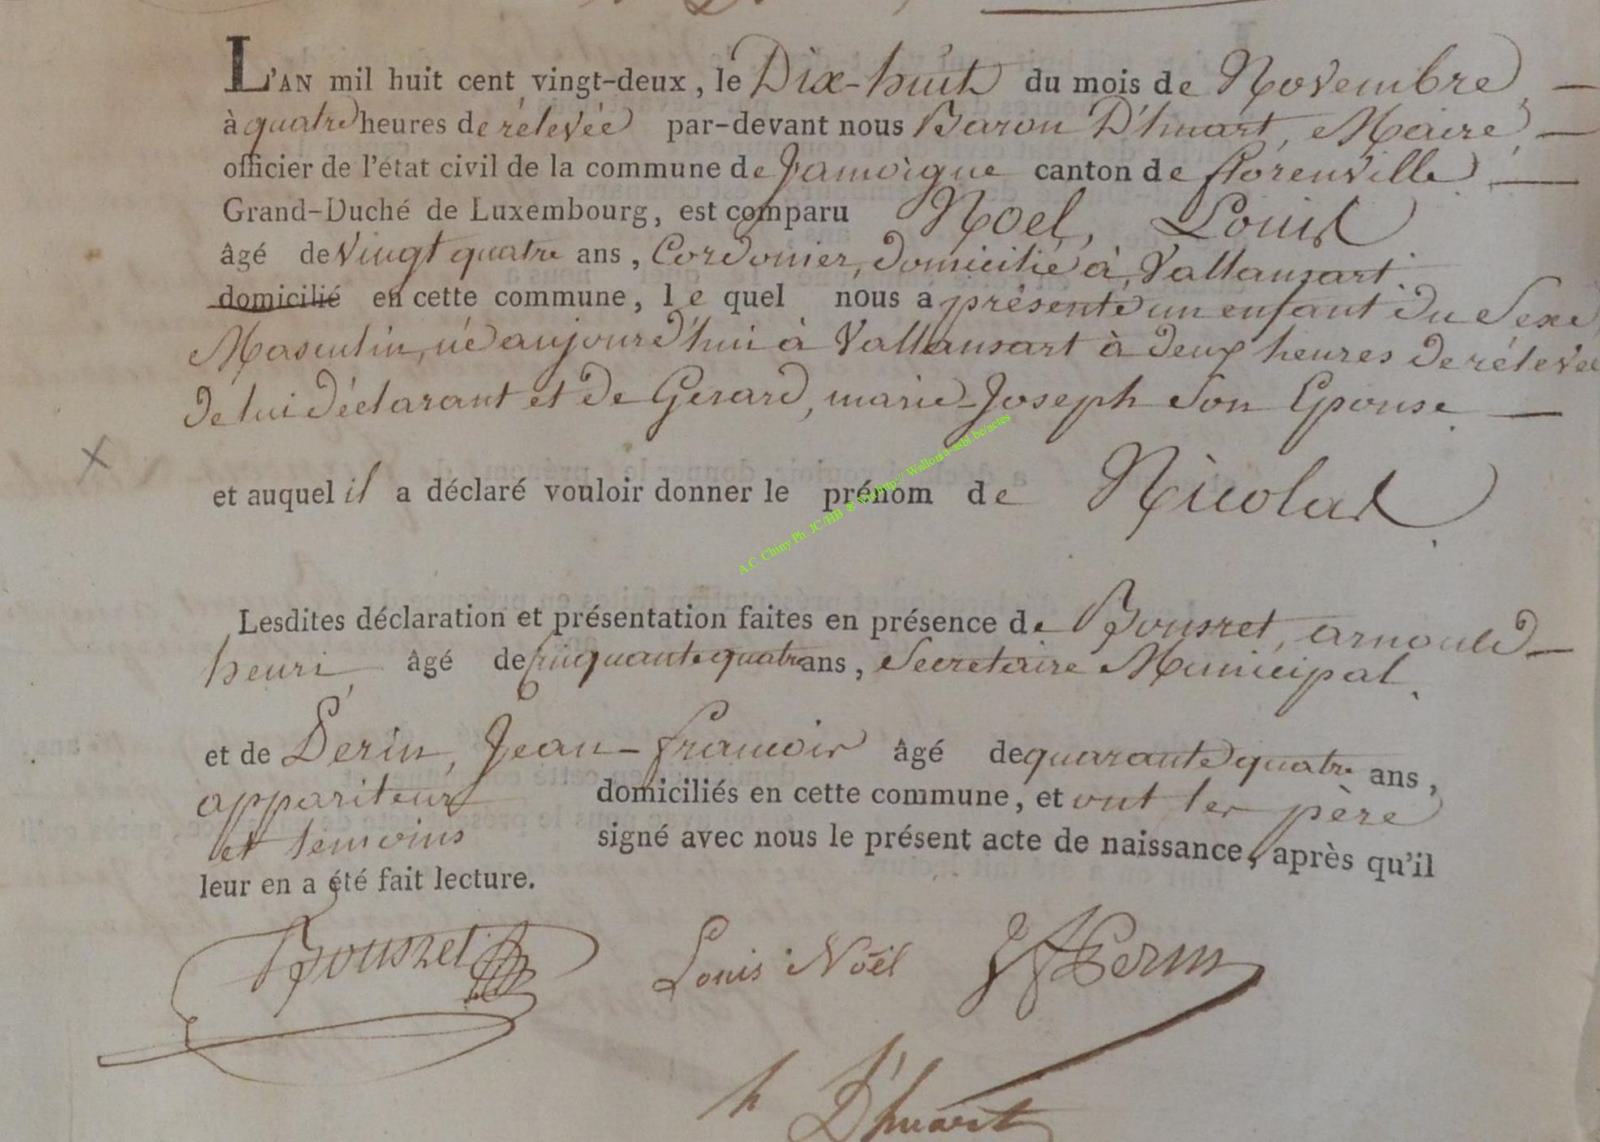 L'AN mil huit cent vingt-deux, le Dix-huit du mois de Novembre
à quatre heures de rélevée par-devant nous Baron D'huart, Maire,
officier de l'état civil de la commune de Jamoigne canton de florenville
Grand-Duché de Luxembourg, est comparu Noel, Louis
âgé de Vingt quatre ans, Cordonier, domicilié à Vallansart
domicilié en cette commune, le quel nous a présenté un enfant du Sexe
Masculin, né aujourd'hui à Vallansart à deux heures de rélevée
de lui déclarant et de Gerard, marie-Joseph Son Epouse
et auquel il a déclaré vouloir donner le prénom de Nicolas
A.C. Chiny Ph. JC/HB Wallonia-asbl.be/actes
Lesdites déclaration et présentation faites en présence de Bousret, arnould
henri âgé de cinquante quatre ans, Secretaire Municipal
et de Perin, Jean-francois âgé de quarante quatre ans,
appariteur domiciliés en cette commune, et ont les père
et temoins signé avec nous le présent acte de naissance, après qu'il
leur en a été fait lecture.
Bousret Louis Noël JF Perin
h D'huart